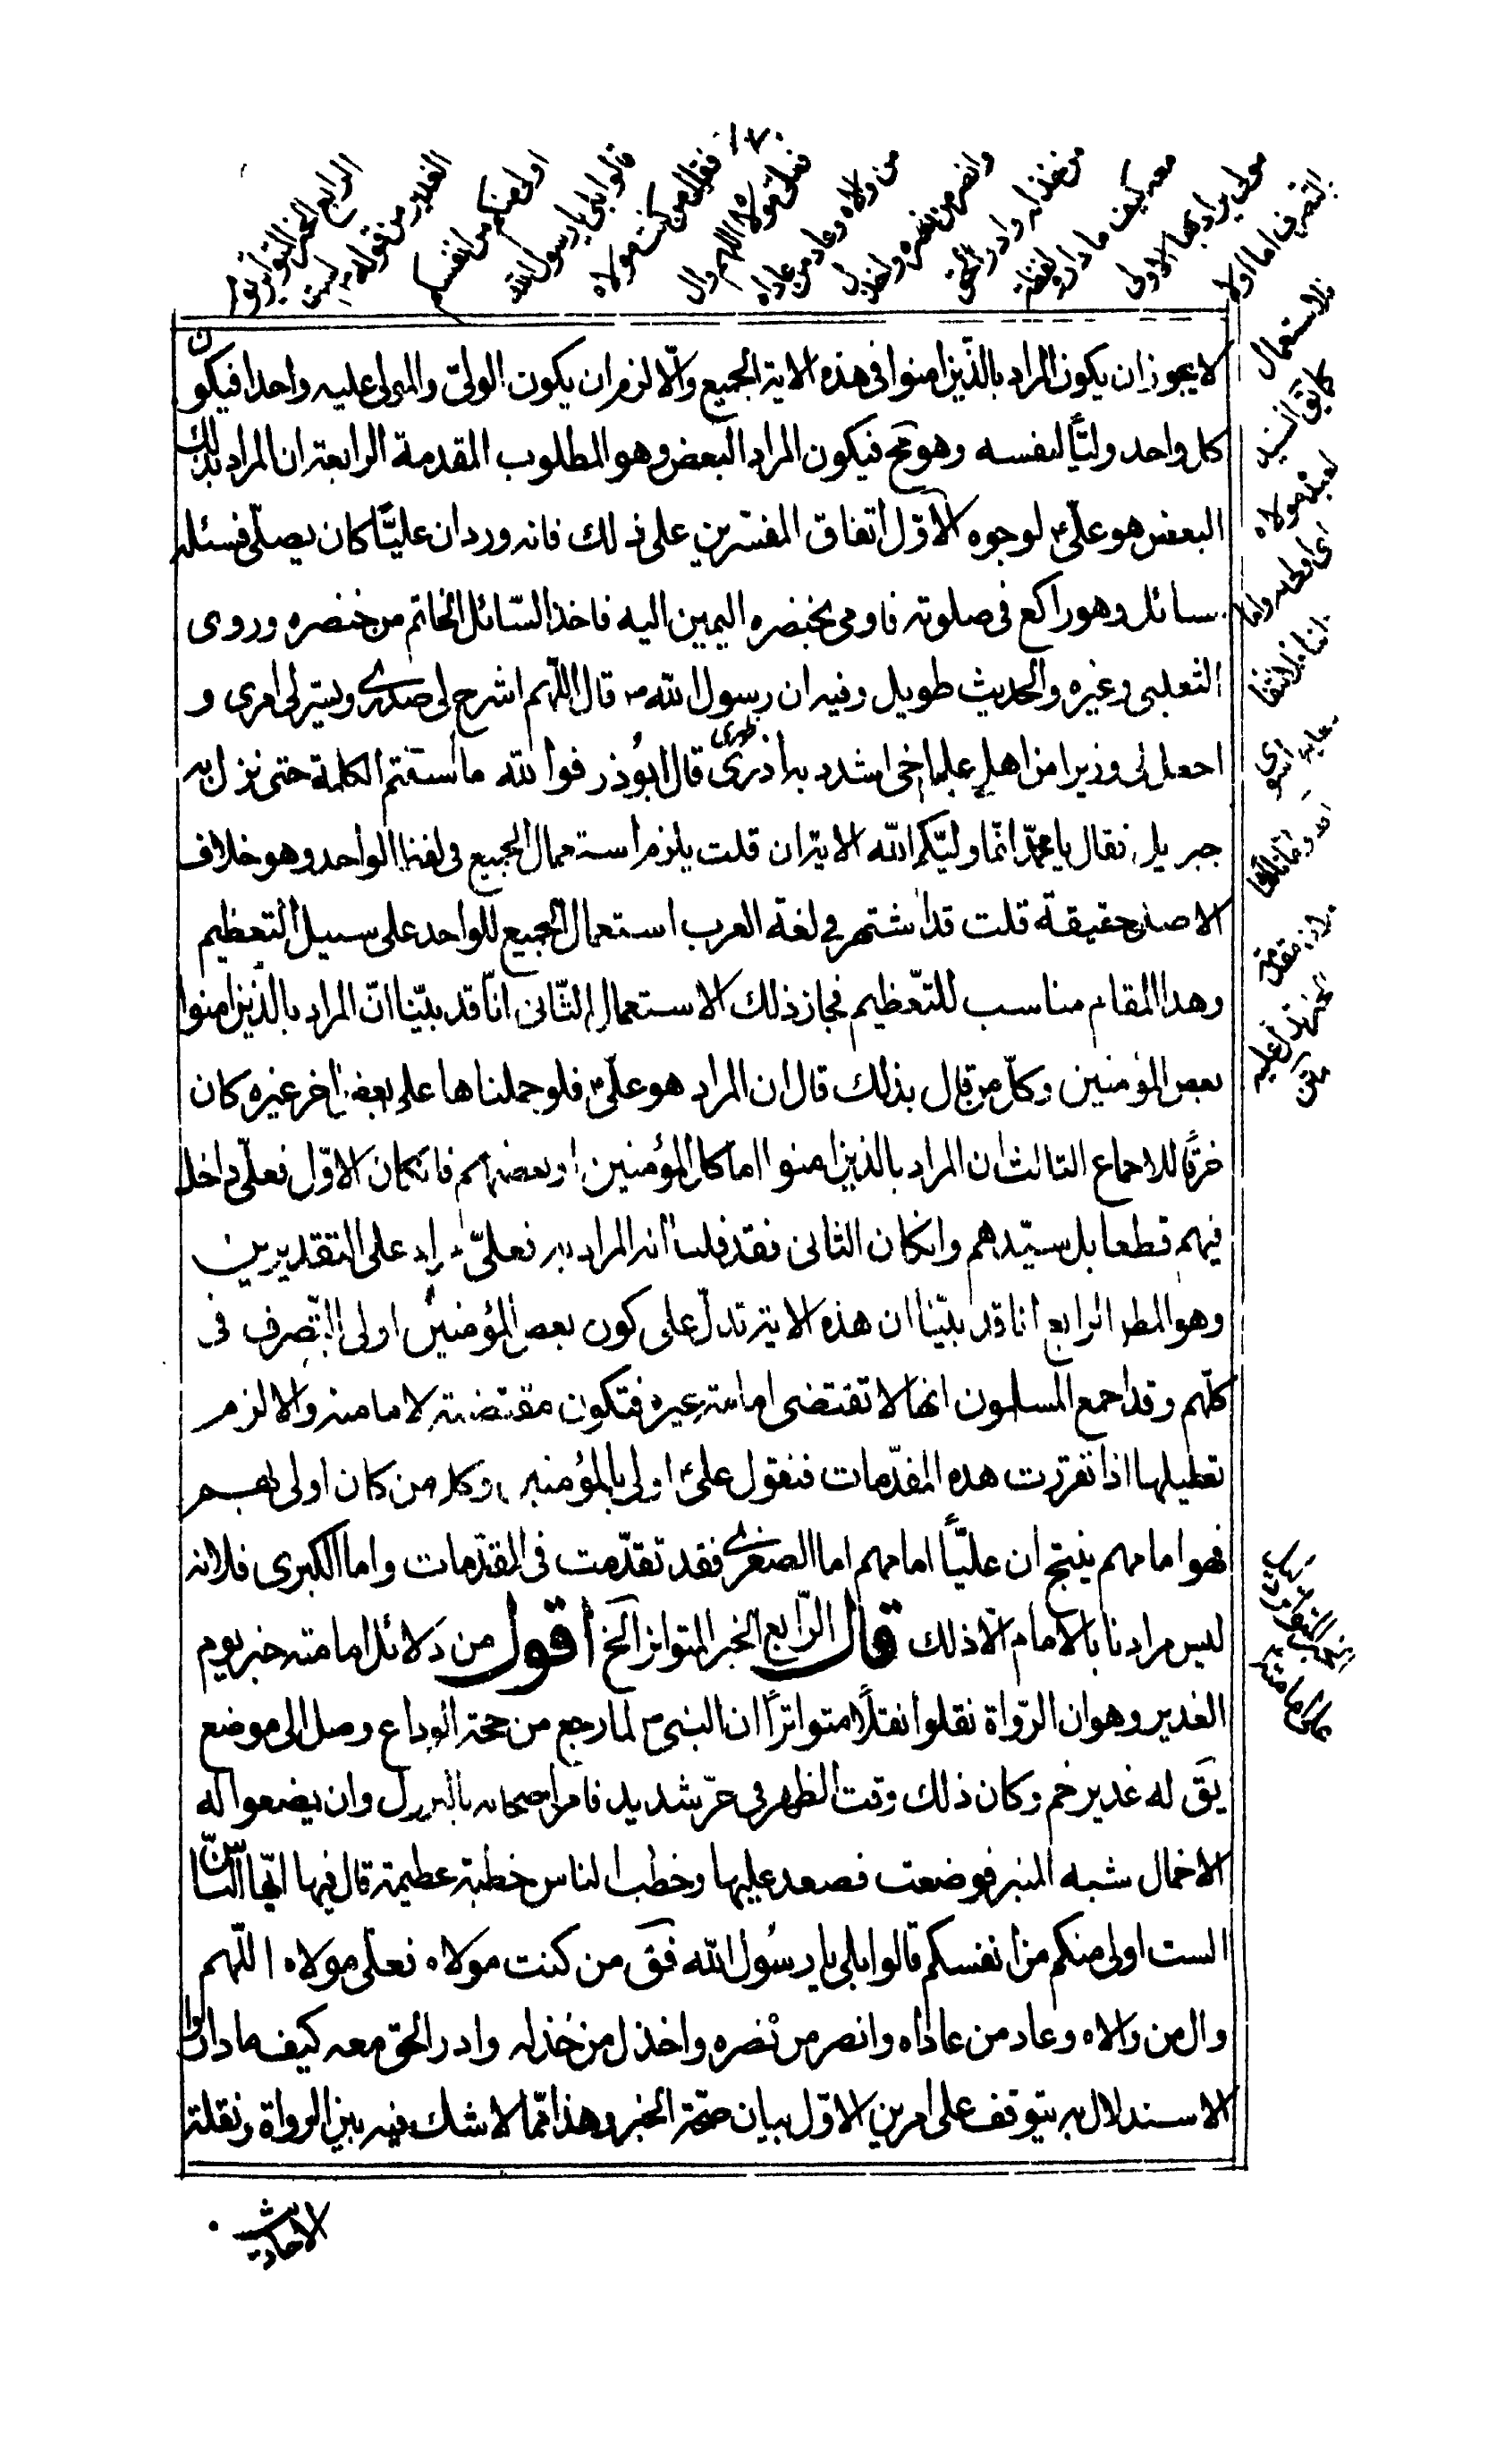 ١٠٧
الرابع الخبر المتواتر يوم
الغدير من قوله لست
اولى منكم من انفسكم
قالوا بلى يا رسول الله
فقال من كنت مولاه
فعلى مولاه اللهم وال
من والاه وعاد من عاداه
وانصر من نصره واخذل
من خذله وادر الحق
معه كيف ما دار لفظة
مولى يراد بها الاولى
بالتصرف اما اولا
فلاستعمال
كما يق السيد
لعبده مولاه
اى اولى به واما
ثانيا فلانتفا
معانيه سوى
واما ثالثا
فلان مقدمة
الخبر تدل عليه
متن
لا يجوز ان يكون المراد بالّذين امنوا فى هذه الاية الجميع والّا لزم ان يكون الولىّ والمولى عليه واحدا فيكون
كل واحد وليًّا لنفسه وهو مح فيكون المراد البعض وهو المطلوب المقدمة الرابعة ان المراد بذلك
البعض هو علىّ ع لوجوه الاوّل اتفاق المفسّرين على ذلك فانه ورد ان عليًّا كان يصلّى فسئله
سائل وهو راكع فى صلوته فاومى بخنصره اليمين اليه فاخذ السّائل الخاتم من خنصره وروى
الثعلبى وغيره والحديث طويل وفيه ان رسول الله ص قال اللّهم اشرح لى صدرى ويسّر لى امرى و
اجعل لى وزيرا من اهلى عليا اخى اشدد به ازرى ظهرى قال ابُوذر فوالله ما استتم الكلمة حتى نزل به
جبريل فقال يا محمّد انّما وليّكم الله الاية ان قلت يلزم استعمال الجميع فى لفظ الواحد وهو خلاف
الاصل حقيقة قلت قد اشتهر فى لغة العرب استعمال الجميع للواحد على سبيل التعظيم
وهذا المقام مناسب للتّعظيم فجاز ذلك الاستعمال الثّانى انّا قد بيّنا انّ المراد بالّذين امنوا
بعض المؤمنين وكلّ من قال بذلك قال ان المراد هو علىّ ع فلو حملناها على بعض اخر غيره كان
خرقًا للاجماع الثالث ان المراد بالذين امنوا اما كل المؤمنين او بعضهم فان كان الاوّل فعلىّ داخل
فيهم قطعا بل سيّدهم وان كان الثانى فقد قلنا انه المراد به فعلىّ مراد على التقديرين
وهو المط الرابع انا قد بيّنا ان هذه الاية تدلّ على كون بعض المؤمنين اولى بالتّصرف فى
كلّهم وقد اجمع المسلمون انها لا تقتضى امامة غيره فتكون مقتضية لامامته والا لزم
تعطيلها اذا تقررت هذه المقدّمات فنقول علىّ اولى بالمؤمنين وكل من كان اولى بهم
فهو امامهم ينتج ان عليّاً امامهم اما الصغرى فقد تقدّمت فى المقدّمات واما الكبرى فلانه
ليس مرادنا بالامام الّا ذلك قال الرّابع الخبر المتواتر الخ اقول من دلائل امامته خبر يوم
الغدير وهو ان الرّواة نقلوا نقلًا متواترًا ان النبى ص لما رجع من حجة الوداع وصل الى موضع
يَق له غدير خم وكان ذلك وقت الظهر فى حرّ شديد فامر اصحابه بالنزول وان يضعوا له
الاحمال شبه المنبر فوضعت فصعد عليها وخطب الناس خطبة عظيمة قال فيها ايّها النّاس
الست اولى منكم من انفسكم قالوا بلى يا رسُول الله فَق من كنت مولاه فعلىّ مولاه اللّهم
وال من والاه وعاد من عاداه وانصر من نصره واخذل من خذله وادر الحق معه كيف ما دار و
الاستدلال به يتوقف على امرين الاوّل بيان صحّة الخبر وهذا ممّا لا شك فيه بين الرواة ونقلة
الاحاديث